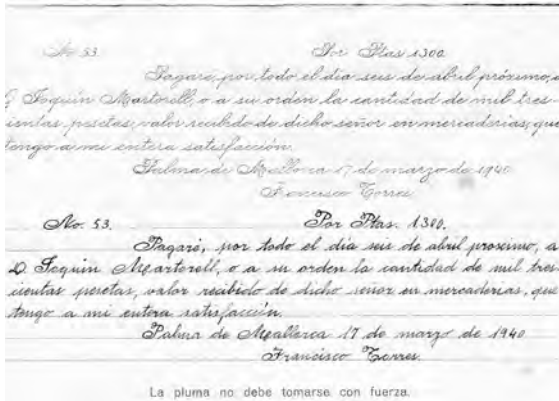 No 53. Por Ptas 1300.
Pagaré, por todo el día seis de abril próximo, a
D. Joquin Martorell, o a su orden la cantidad de mil tres
cientas pesetas, valor recibido de dicho señor en mercaderias, que
tengo a mi entera satisfacción.
Palma de Mallorca 17 de marzo de 1940
Francisco Torres
No. 53. Por Ptas. 1300.
Pagaré, por todo el día seis de abril proximo, a
D. Joquin Martorell, o a su orden la cantidad de mil tres-
cientas pesetas, valor recibido de dicho señor en mercaderias, que
tengo a mi entera satisfacción.
Palma de Mallorca 17 de marzo de 1940
Francisco Torres
La pluma no debe tomarse con fuerza.